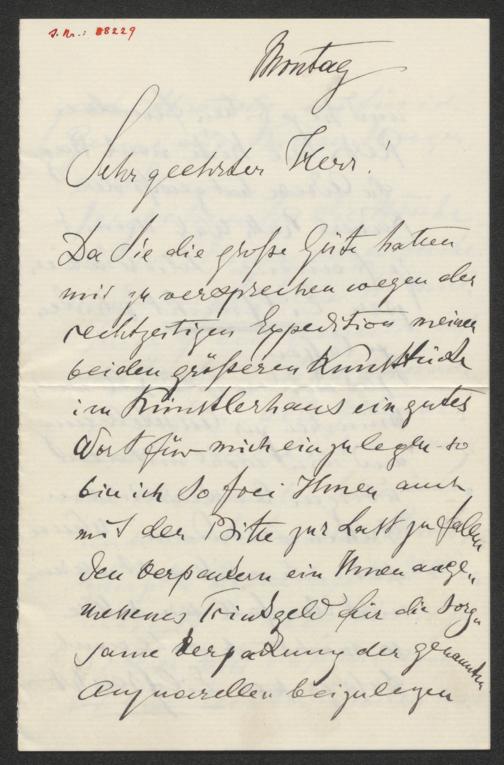 J. Nr.: 88229
Montag
Sehr geehrter Herr!
Da Sie die große Güte hatten
mir zu versprechen wegen der
rechtzeitigen Expedition meiner
beiden größeren Kunststücke
im Künstlerhaus ein gutes
Wort für mich einzulegen so
bin ich so frei Ihnen auch
mit der Bitte zur Last zu fallen
den Verpackern ein Ihnen ange
messenes Trinkgeld für die sorg
same Verpackung der genannten
Aquarellen beizulegen